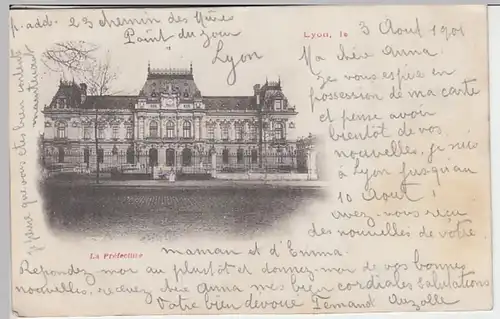 p. add. 23 chemin des
Point du jour
Lyon
Lyon, le 3 Aout 1901
Ma chère Anna.
Je vous espère en
possession de ma carte
et pense avoir
bientôt de vos
nouvelles, je suis
à Lyon jusqu'au
10 Aout!
avez-vous reçu
des nouvelles de votre
maman et d'Emma.
La Préfecture
Repondez moi au plustôt et donnez moi de vos bonnes
nouvelles, recevez chère Anna mes bien cordiales salutations
Votre bien devoué Fernand
je pense que vous êtes bien content
maintenant